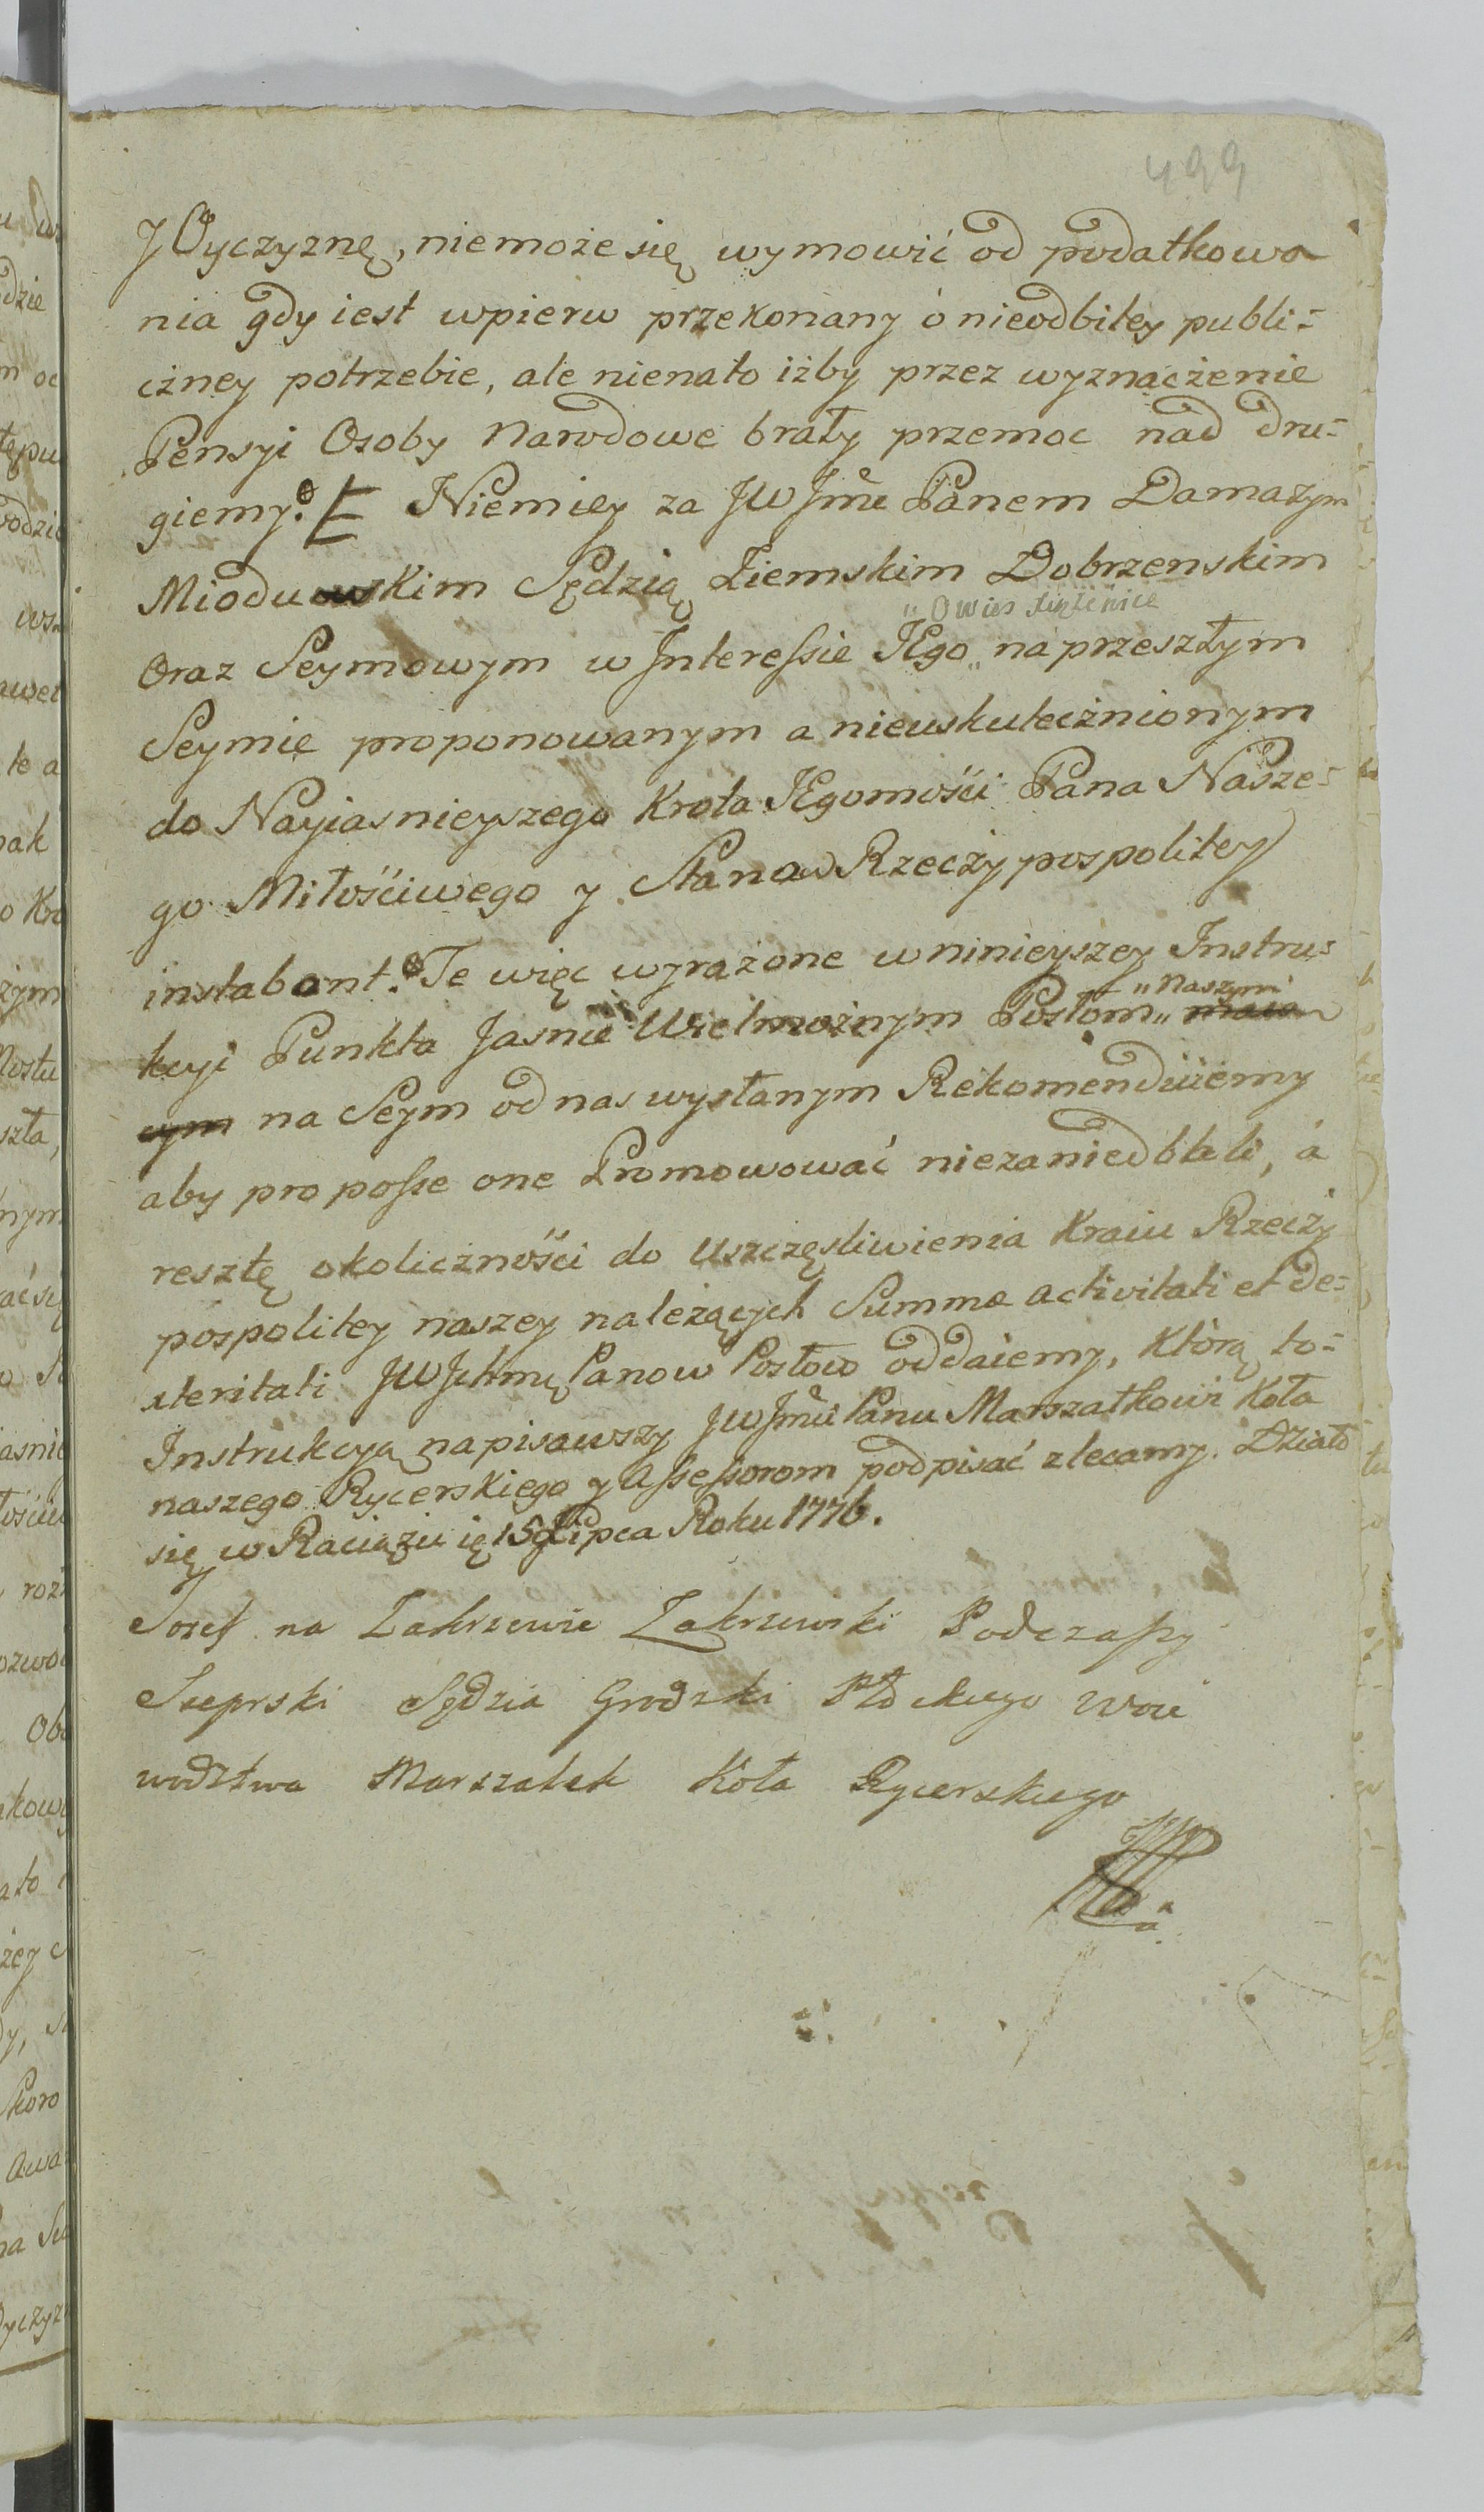 499
J Oyczyznę, niemoże się wymowić od podatkowa
nia gdy iest wpierw przekonany ó nieodbitey publi-
czney potrzebie, ale nienato iżby przez wyznaczenie
Pensyi Osoby Narodowe brały przemoc nad dru-
giemy. Niemiey za JW Jmć Panem Damazym
Mioduskim Sędzią Ziemskim Dobrzenskim
„O wies
Oraz Seymowym w Interessie JEgo „ na przeszłym
Seymie proponowanym a nieuskutecznionym
do Nayiasnieyszego Krola JEgomości Pana Nasze-
go Miłościwego y Stanow Rzeczy pospolitey
instabunt. Te więc wyrażone w ninieyszey Instru-
„Naszymi
kcyi Punkta Jasnie Wielmożnym Posłom „ maią
cym na Seym od nas wysłanym Rekomenduiemy
aby pro posse one Promowować niezaniedbteli, á
resztę okoliczności do uszczęsliwienia Kraiu Rzeczy
pospolitey naszey należących Summæ activitati et de-
xteritati JW Jchmę Panow Posłow oddaiemy, Którą to-
Instrukcyą napisawszy JW Jmci Panu Marszałkowi Koła
naszego Rycerskiego y Assessorom podpisać zlecamy. Działo
się w Raciążu 15 Lipca Roku 1776.
Jozef na Zakrzewie Zakrzewski Podczaszy
Szeprski Sędzia Grodzki Płockiego Woie
wodztwa Marszałek Koła Rycerskiego